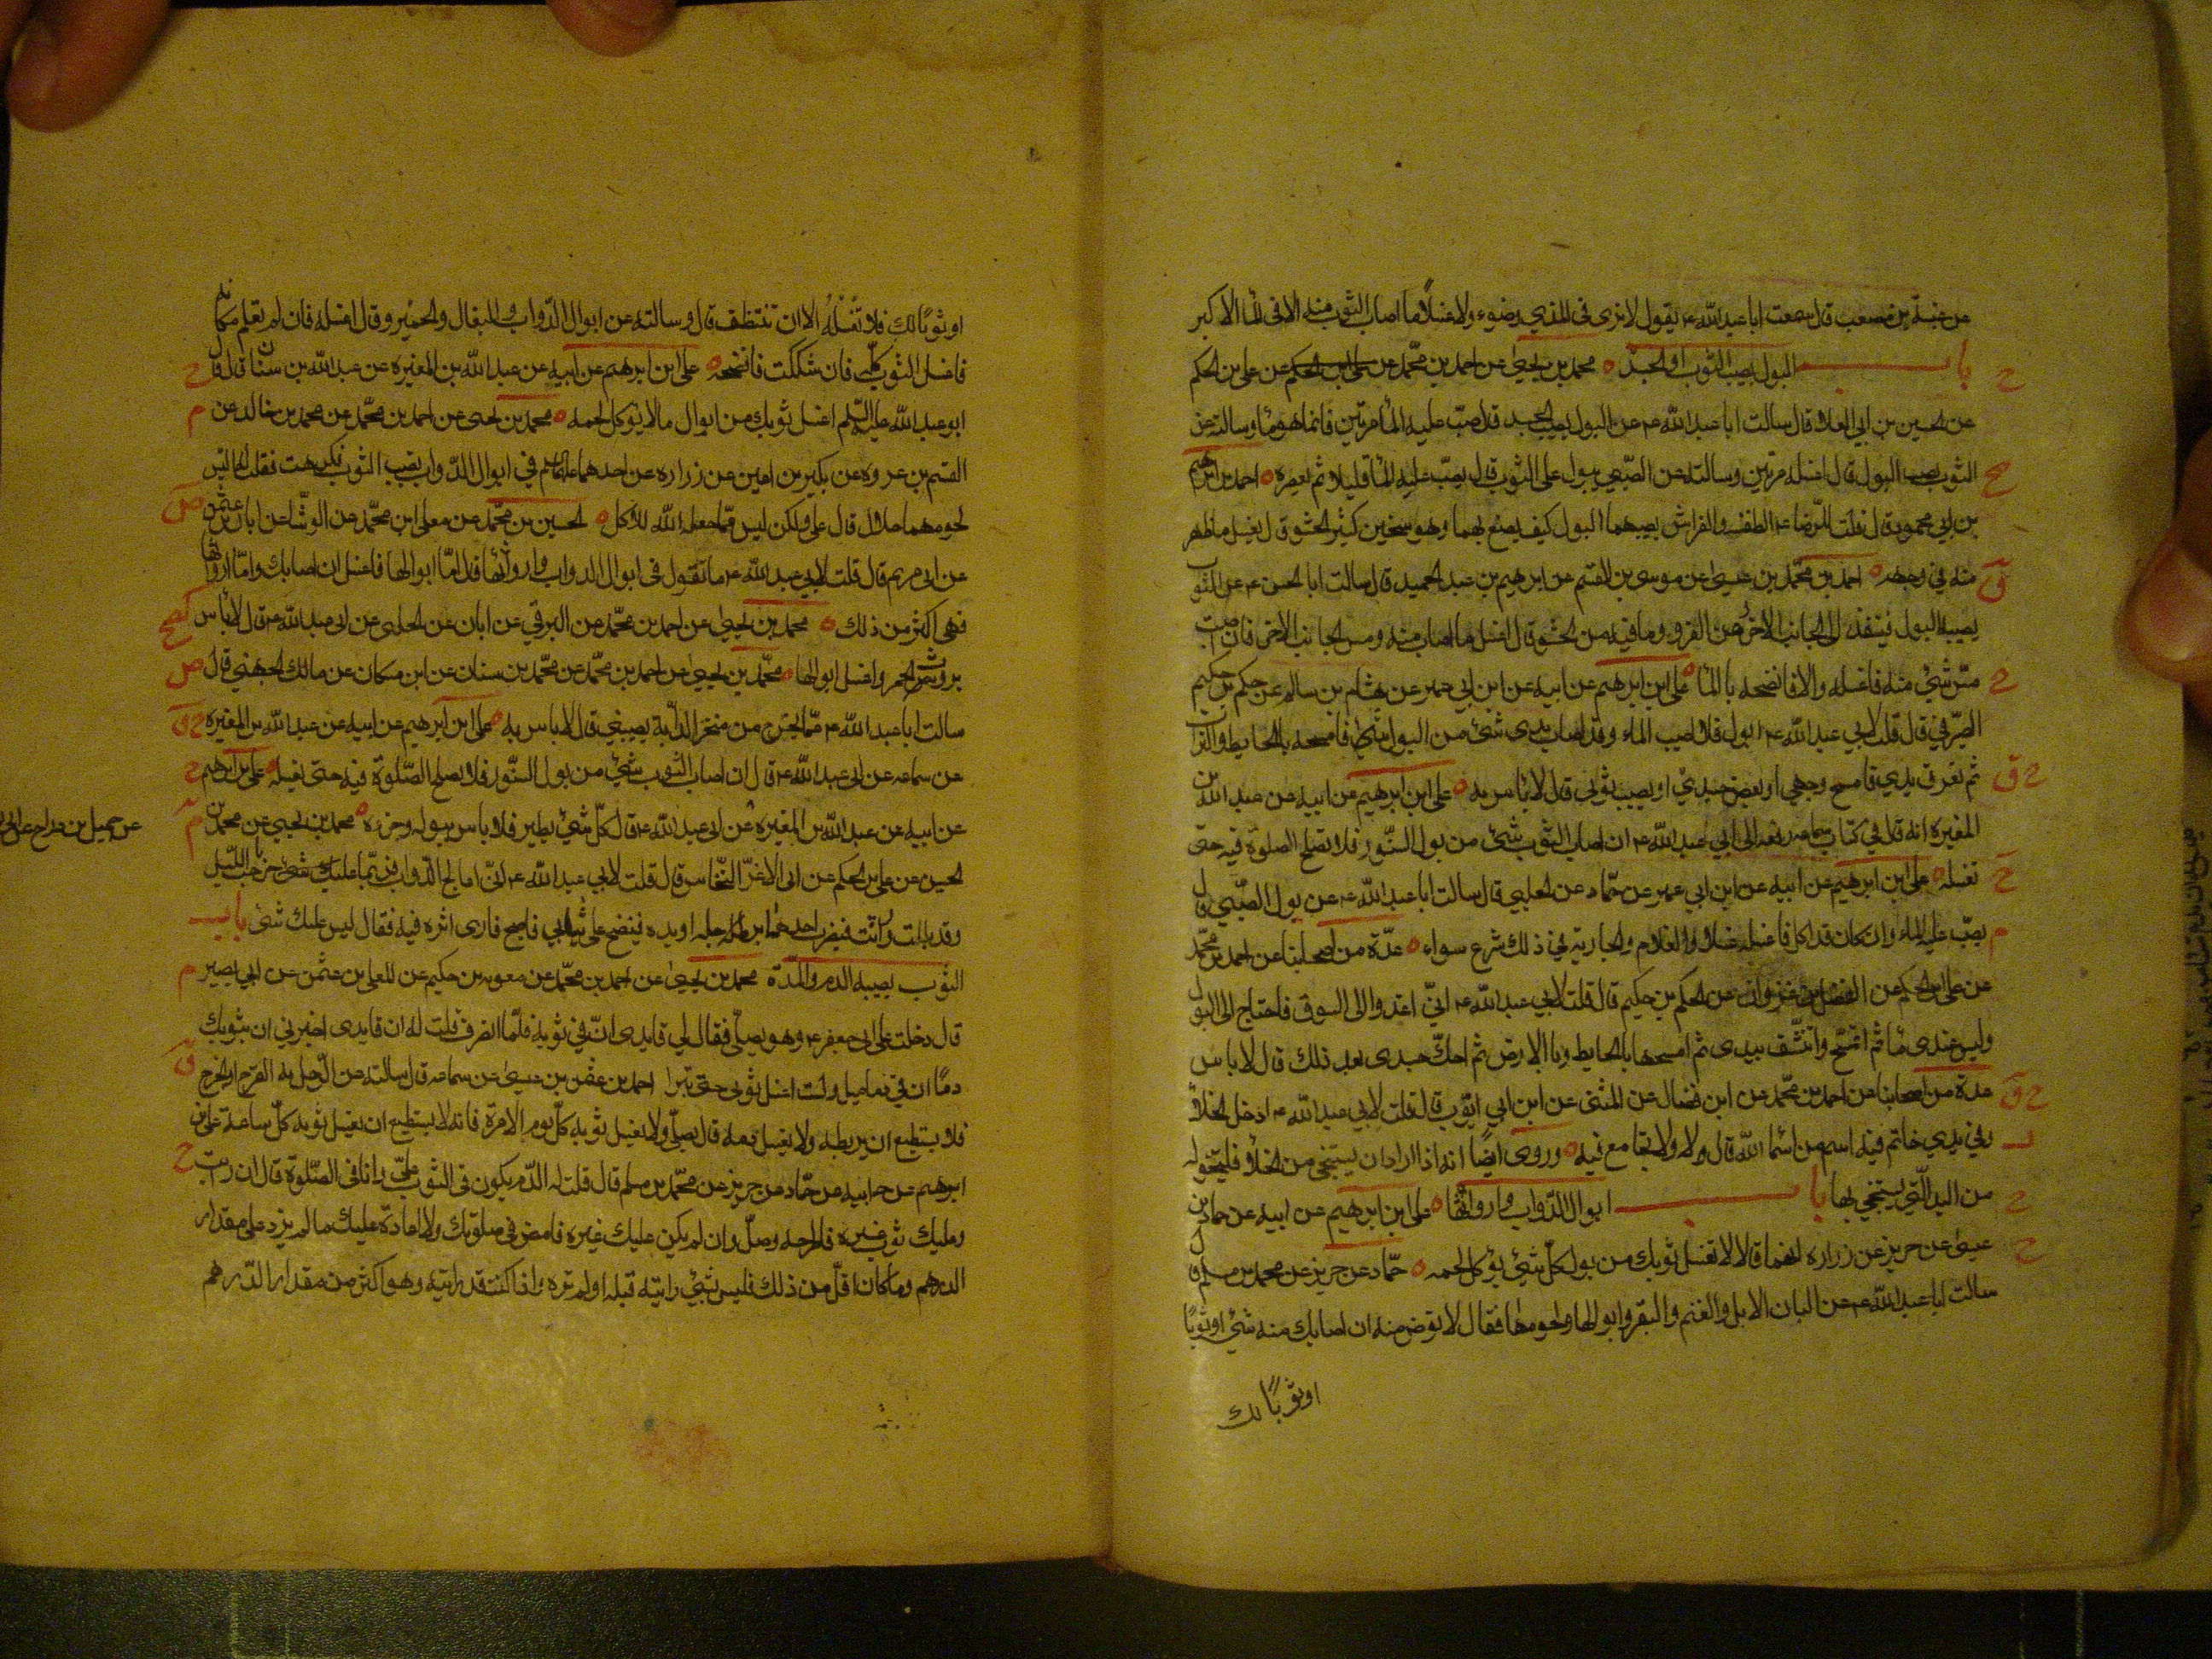 عن عنبسة بن مصعب قال سمعت ابا عبد الله ع يقول لا نرى فى المذي وضوء ولا غسلاً ما اصاب الثوب منه الا فى الما الاكبر
باب البول يصيب الثوب او الجسد محمد بن يحيى عن احمد بن محمد عن علي بن الحكم عن علي بن الحكم
عن الحسين بن ابي العلا قال سالت ابا عبد الله ع عن البول يصيب الجسد قال صبّ عليه الما مرتين فانما هو ما وسالته عن
الثوب يصيبه البول قال اغسله مرتين وسالته عن الصبي يبول على الثوب قال يصبّ عليه الما قليلا ثم يعصره احمد بن ابرهيم
بن ابي محمود قال قلت للرضا ع الطنفسه والفراش يصيبهما البول كيف يصنع بهما وهو سخين كثير الحشو قال يغسل ما ظهر
منه في وجهه احمد بن محمد بن عيسى عن موسى بن القسم عن ابرهيم بن عبد الحميد قال سالت ابا الحسن ع عن الثوب
يصيبه البول فينفذ الى الجانب الاخر وعن الفرو وما فيه من الحشو قال اغسل ما اصاب منه ومس الجانب الاخر فان اصبت
مسّ شئ منه فاغسله والا فانضحه بالما علي ابن ابرهيم عن ابيه عن ابن ابي عمير عن هشام بن سالم عن حكم بن حكيم
الصيرفي قال قلت لابي عبد الله ع ابول فلا اصيب الماء وقد اصاب يدى شئ من البول فامسحه بالحايط والتراب
ثم تعرق يدي فامسح وجهي او بعض جسدي او يصيب ثوبى قال لا باس به علي ابن ابرهيم عن ابيه عن عبد الله بن
المغيرة انه قال في كتاب سماعه رفعه الى ابي عبد الله ع ان اصاب الثوب شئ من بول السنور فلا تصلح الصلوة فيه حتى
تغسله علي ابن ابرهيم عن ابيه عن ابن ابي عمير عن حماد عن الحلبي قال سالت ابا عبد الله ع عن بول الصبي قال
يصبّ عليه الماء وان كان قد اكل فاغسله غسلا والغلام والجارية في ذلك شرع سواء عدّة من اصحابنا عن احمد بن محمد
عن علي بن الحكم عن الفضل بن غزوان عن الحكم بن حكيم قال قلت لابي عبد الله ع انّي اغدوا الى السوق فاحتاج الى البول
وليس عندى ما ثم اتمسّح واتنشّف بيدى ثم امسحها بالحايط وبالارض ثم احكّ جسدى بعد ذلك قال لا باس
عدة من اصحابنا عن احمد بن محمد عن ابن فضال عن المثنى عن ابن ابي ايوب قال قلت لابي عبد الله ع ادخل الخلا
وفي يدي خاتم فيه اسم من اسما الله قال لا ولا تجامع فيه وروى ايضا انه اذا اراد ان يستنجى من الخلا فليحوله
من اليد التي يستنجي بها باب ابوال الدواب وارواثها علي ابن ابرهيم عن ابيه عن حماد بن
عيسى عن حريز عن زراره انهما قالا لا تغسل ثوبك من بول كلّ شئ يؤكل لحمه حمّاد عن حريز عن محمد بن مسلم قال
سالت ابا عبد الله ع عن البان الابل والغنم والبقر وابوالها ولحومها فقال لا توض منه ان اصابك منه شئ او ثوبًا
او ثوبًا لك
او ثوبًا لك فلا تغسله الا ان تتنظف قال وسالته عن ابوال الدواب والبغال والحمير وقال اغسله فان لم تعلم مكانه
فاغسل الثوب كلّه فان شككت فانضحه علي ابن ابرهيم عن ابيه عن عبد الله بن المغيره عن عبد الله بن سنان قال قال
ابو عبد الله عليه السلم اغسل ثوبك من ابوال ما لا يؤكل لحمه محمد بن يحيى عن احمد بن محمد عن محمد بن خالد عن
القسم بن عروه عن بكير بن اعين عن زراره عن احدهما عليهما السلم في ابوال الدواب يصيب الثوب فكرهه فقلت اليس
لحومهما حلال قال بلى ولكن ليس ممّا جعله الله للاكل الحسين بن محمد عن معلى ابن محمد عن الوشّا عن ابان بن عثمن
عن ابى مريم قال قلت لابي عبد الله ع ما تقول فى ابوال الدواب وارواثها قال امّا ابوالها فاغسل ان اصابك وامّا ارواثها
فهى اكثر من ذلك محمد بن يحيى عن احمد بن محمد عن البرقي عن ابان عن الحلبى عن ابى عبد الله ع قال لا باس
بروث الحمر واغسل ابوالها محمد بن يحيى عن احمد بن محمد عن محمد بن سنان عن ابن مسكان عن مالك الجهنى قال
سالت ابا عبد الله ع عمّا يخرج من منخر الدابة يصيبني قال لا باس به علي ابن ابرهيم عن ابيه عن عبد الله بن المغيره
عن سماعه عن ابى عبد الله ع قال ان اصاب الثوب شئ من بول السنّور فلا يصلح الصلوة فيه حتى يغسله علي بن ابرهيم
عن ابيه عن عبد الله بن المغيرة عن ابى عبد الله ع قال كلّ شئ يطير فلا باس ببوله وخرءه محمد بن يحيى عن محمد بن
عن جميل بن دراج عن ابى
الحسين عن علي بن الحكم عن ابى الاغرّ النخّاس قال قلت لابي عبد الله ع انّي اعالج الدواب فربّما خرجت بالليل
وقد بالت وراثت فيضرب احدهما برجله او يده فينضح على ثيابي فاصبح فارى اثره فيه فقال ليس عليك شئ باب
الثوب يصيبه الدم والمدّة محمد بن يحيى عن احمد بن محمد عن معويه بن حكيم عن المعلى بن عثمن عن ابي بصير
قال دخلت على ابى جعفر ع وهو يصلّى فقال لي قايدى انّ في ثوبه دمًا فلمّا انصرف قلت له ان قايدى اخبرنى ان بثوبك
دمًا ان في دماميل ولست اغسل ثوبى حتى تبرا احمد بن عثمن بن عيسى عن سماعه قال سالته عن الرجل به القرح او الجرح
فلا يستطيع ان يربطه ولا يغسل دمه قال يصلّى ولا يغسل ثوبه كلّ يوم الا مرة فانه لا يستطيع ان يغسل ثوبه كلّ ساعة علي ابن
ابرهيم عن ابيه عن حمّاد عن حريز عن محمد بن مسلم قال قلت له الدّم يكون فى الثوب علىّ وانا فى الصلوة قال ان رايت
وعليك ثوب غيره فاطرحه وصلّ وان لم يكن عليك غيره فامض فى صلوتك ولا اعادة عليك ما لم يزد على مقدار
الدرهم وما كان اقلّ من ذلك فليس بشئ رايته قبله او لم تره واذا كنت قد رايته وهو اكثر من مقدار الدّرهم